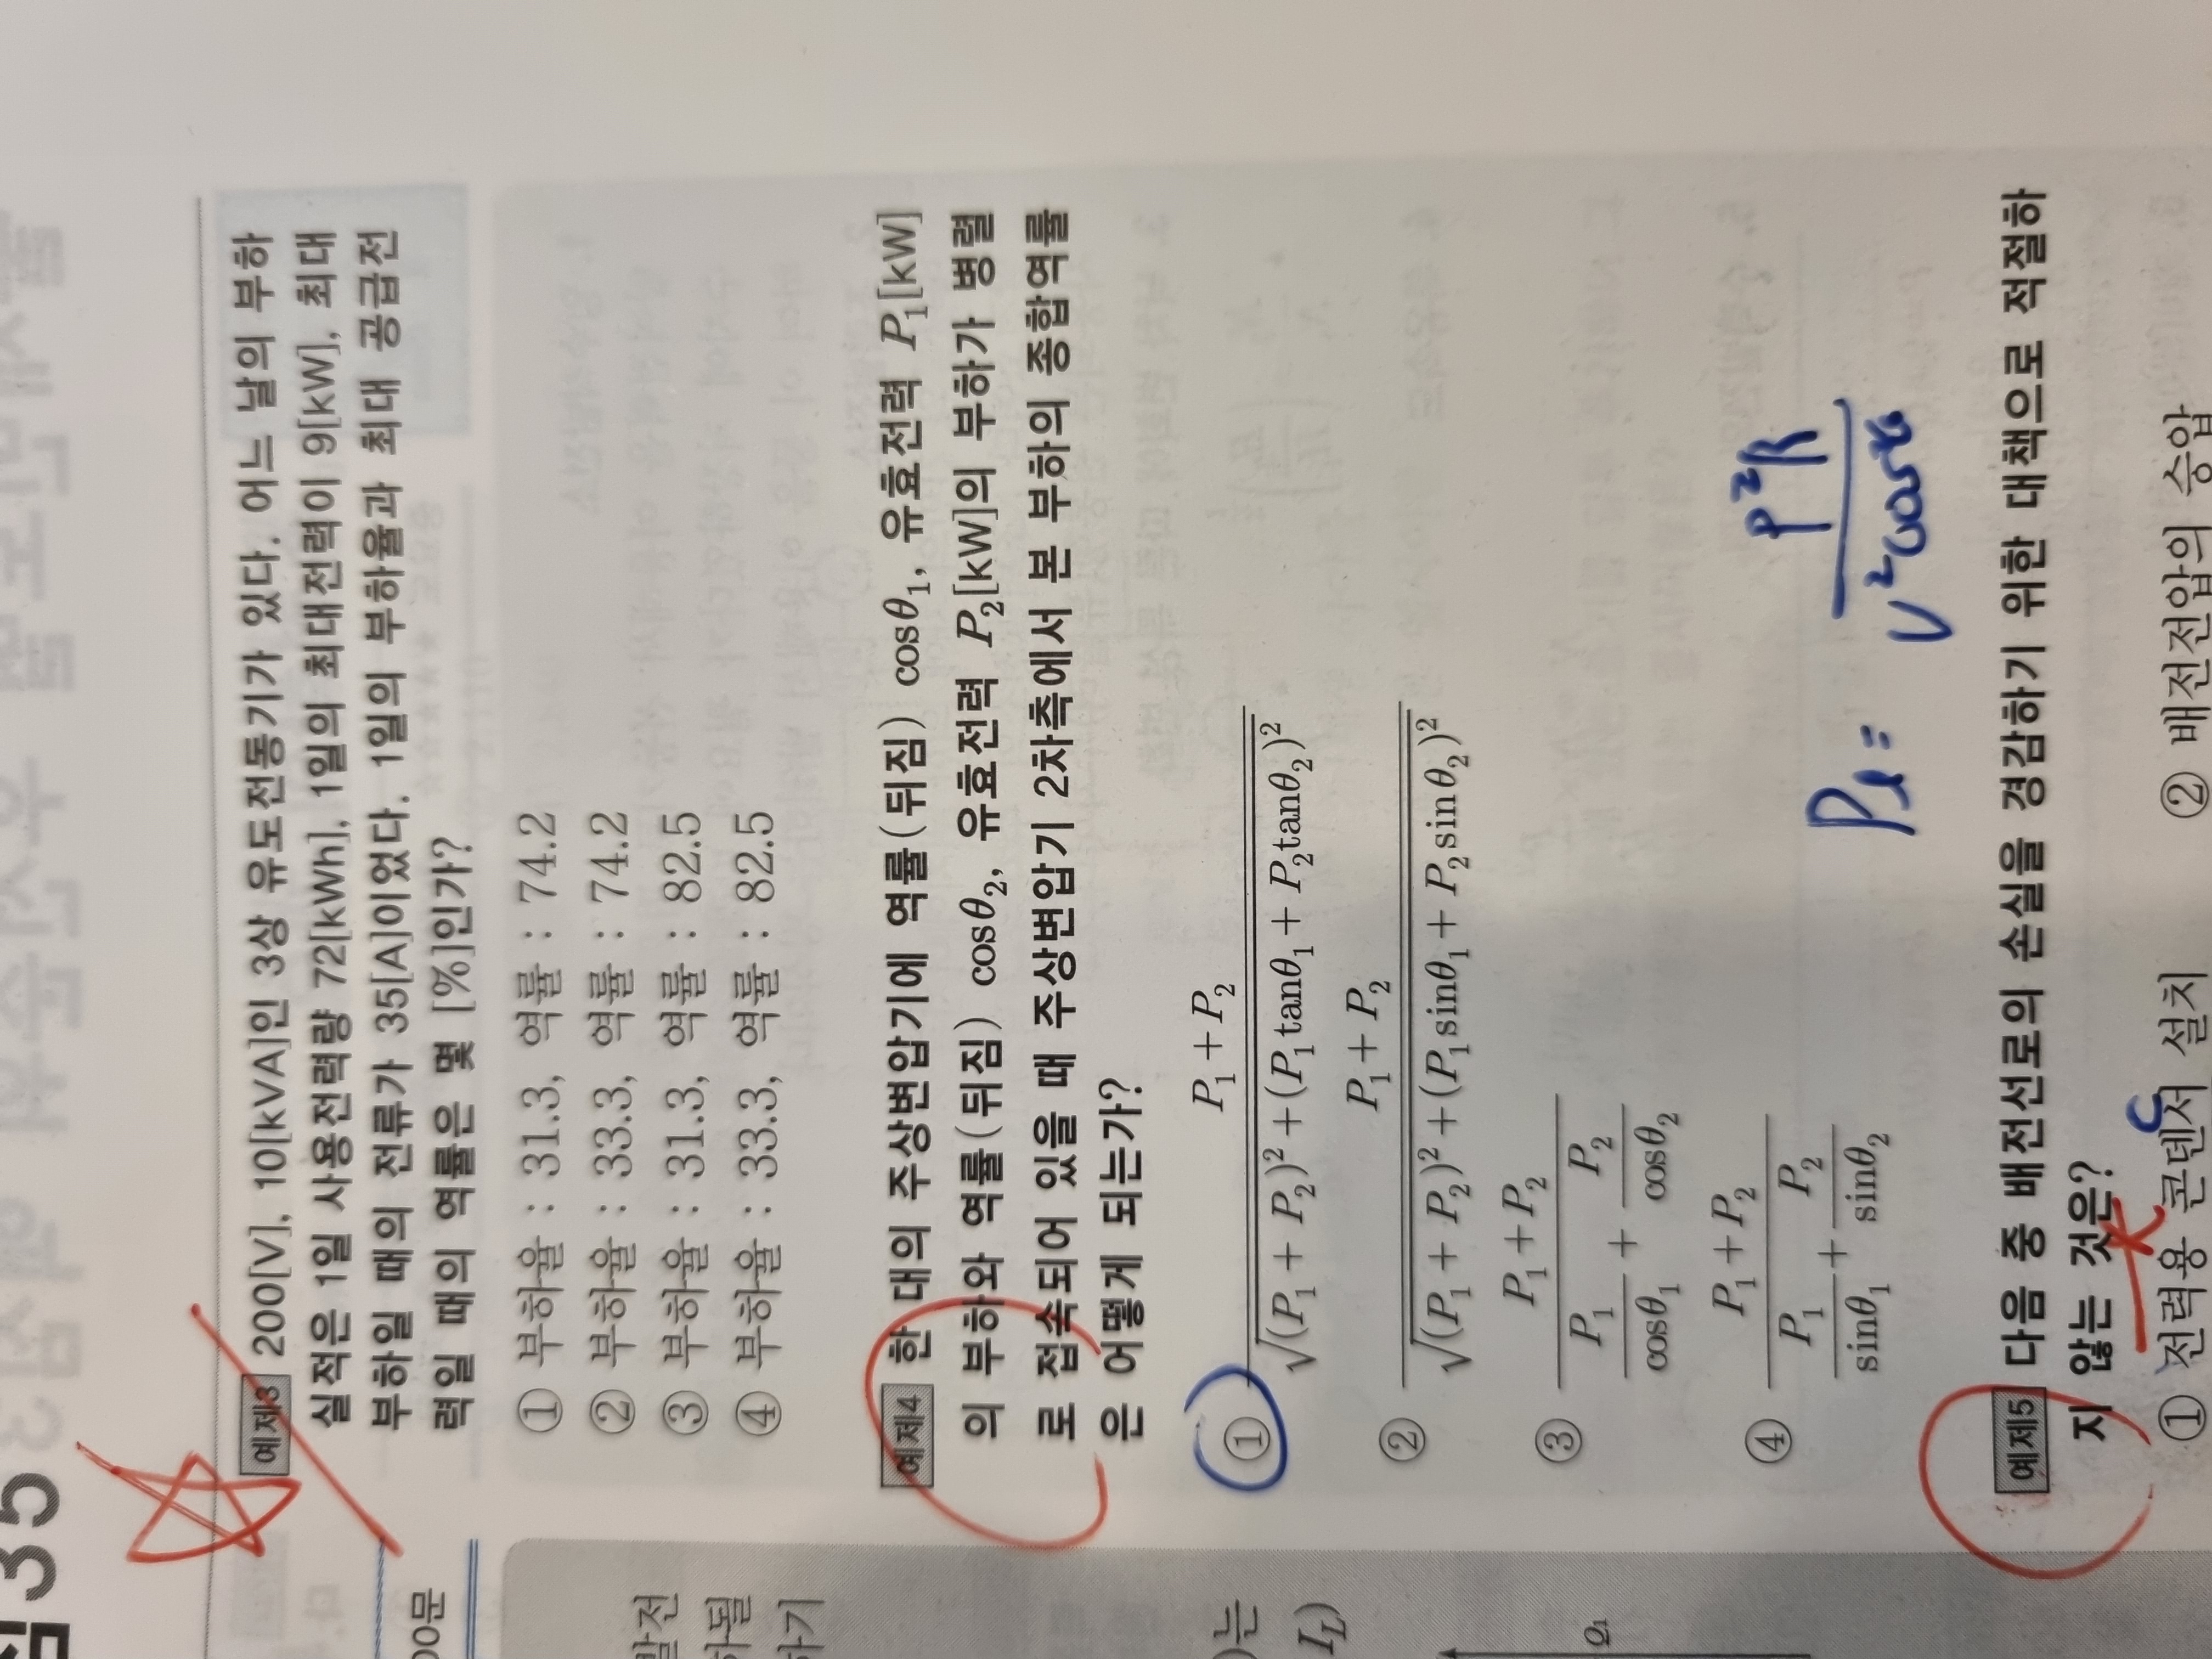 35
예제3 200[V], 10[kVA]인 3상 유도전동기가 있다. 어느 날의 부하
실적은 1일 사용전력량 72[kWh], 1일의 최대전력이 9[kW], 최대
부하일 때의 전류가 35[A]이었다. 1일의 부하율과 최대 공급전
력일 때의 역률은 몇 [%]인가?
① 부하율 : 31.3, 역률 : 74.2
② 부하율 : 33.3, 역률 : 74.2
③ 부하율 : 31.3, 역률 : 82.5
④ 부하율 : 33.3, 역률 : 82.5
예제4 한 대의 주상변압기에 역률(뒤짐) cosθ₁, 유효전력 P₁[kW]
의 부하와 역률(뒤짐) cosθ₂, 유효전력 P₂[kW]의 부하가 병렬
로 접속되어 있을 때 주상변압기 2차측에서 본 부하의 종합역률
은 어떻게 되는가?
① (P₁+P₂) / √((P₁+P₂)²+(P₁tanθ₁+P₂tanθ₂)²)
② (P₁+P₂) / √((P₁+P₂)²+(P₁sinθ₁+P₂sinθ₂)²)
③ (P₁+P₂) / (P₁/cosθ₁ + P₂/cosθ₂)
④ (P₁+P₂) / (P₁/sinθ₁ + P₂/sinθ₂)
Pl = P²R / V²cos²θ
예제5 다음 중 배전선로의 손실을 경감하기 위한 대책으로 적절하
지 않는 것은?
C
① 전력용 콘덴서 설치 ② 배전전압의 승압
00문
발전
하될
하기
)는
I_L)